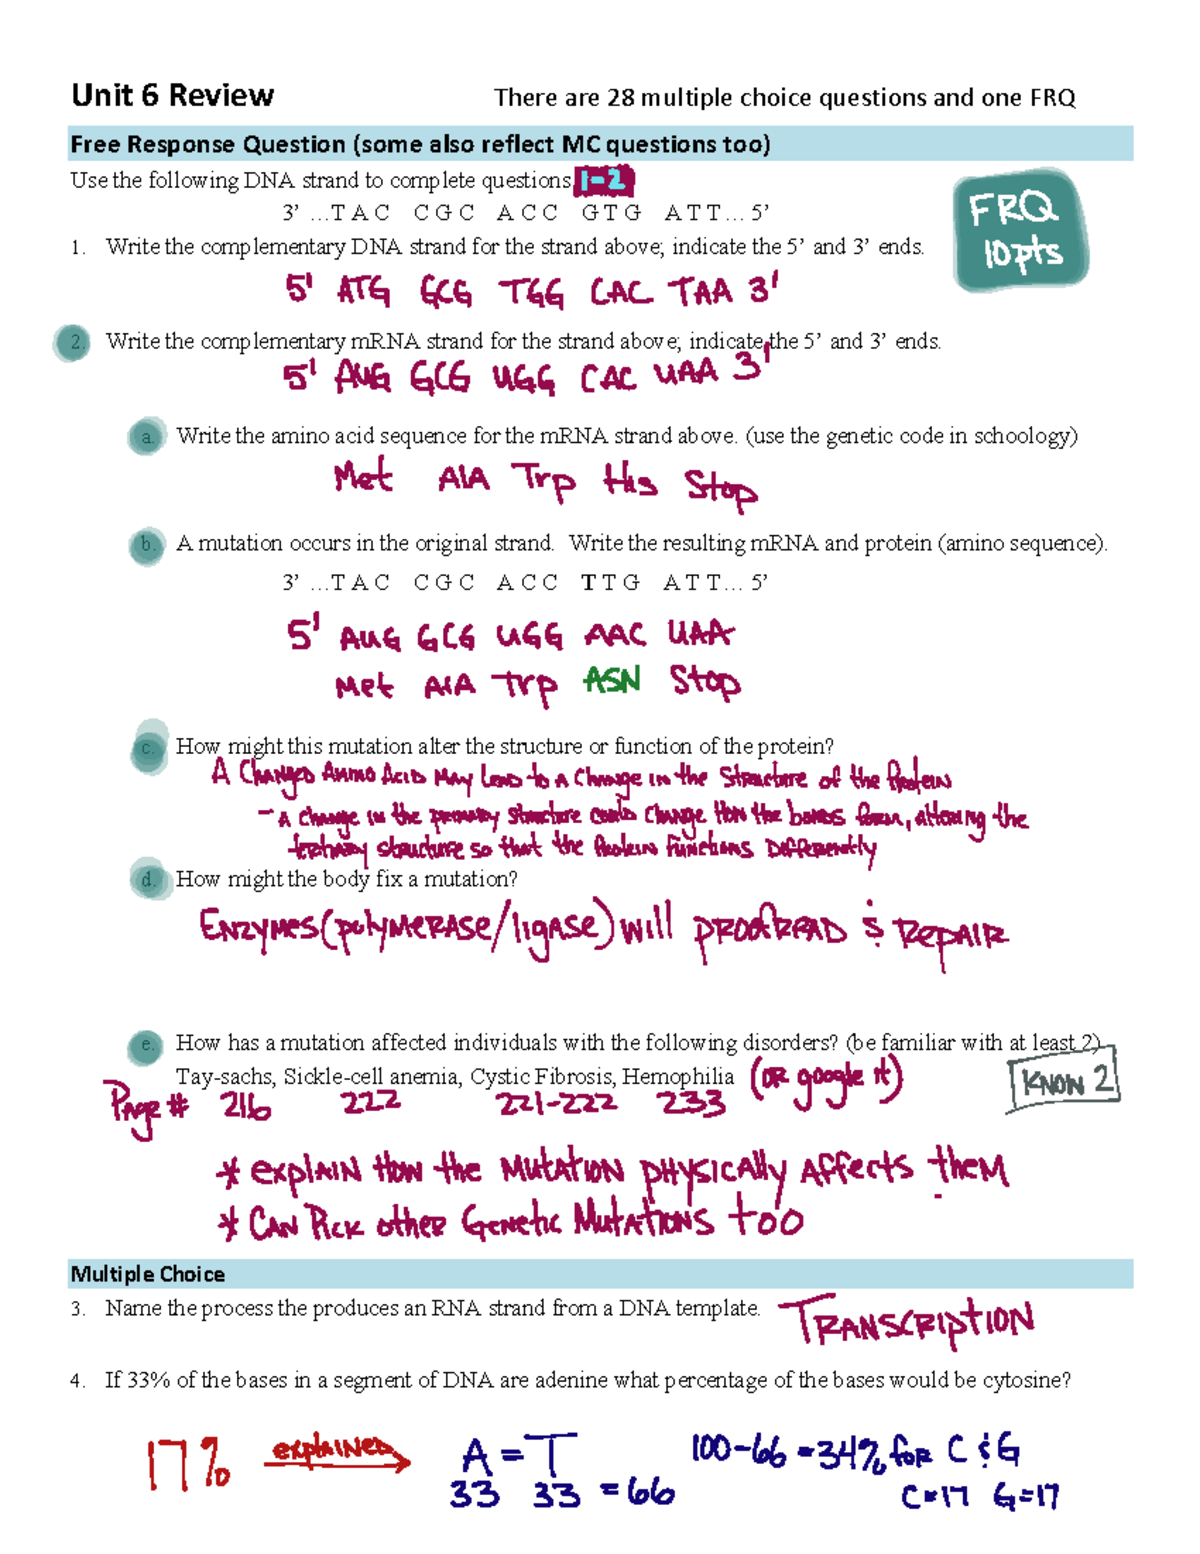 Unit 6 Review There are 28 multiple choice questions and one FRQ
Free Response Question (some also reflect MC questions too)
Use the following DNA strand to complete questions 1-2
3’ …T A C C G C A C C G T G A T T… 5’
FRQ
10 pts
1. Write the complementary DNA strand for the strand above; indicate the 5’ and 3’ ends.
5' ATG GCG TGG CAC TAA 3'
2. Write the complementary mRNA strand for the strand above; indicate the 5’ and 3’ ends.
5' AUG GCG UGG CAC UAA 3'
a. Write the amino acid sequence for the mRNA strand above. (use the genetic code in schoology)
Met AlA Trp His Stop
b. A mutation occurs in the original strand. Write the resulting mRNA and protein (amino sequence).
3’ …T A C C G C A C C T T G A T T… 5’
5' AUG GCG UGG AAC UAA
Met AlA Trp ASN Stop
c. How might this mutation alter the structure or function of the protein?
A Changed Amino Acid May Lead to a Change in the Structure of the Protein
- A change in the primary structure could change How the bonds form, altering the
tertiary structure so that the Protein functions Differently
d. How might the body fix a mutation?
Enzymes (polymerase/ligase) will proofread & Repair
e. How has a mutation affected individuals with the following disorders? (be familiar with at least 2)
Tay-sachs, Sickle-cell anemia, Cystic Fibrosis, Hemophilia (OR google it)
KNOW 2
Page # 216 222 221-222 233
* explain How the Mutation physically Affects them
* CAN Pick other Genetic Mutations too
Multiple Choice
3. Name the process the produces an RNA strand from a DNA template. TRANSCRIPTION
4. If 33% of the bases in a segment of DNA are adenine what percentage of the bases would be cytosine?
17% explained A = T 100-66 = 34% for C & G
33 33 = 66 C=17 G=17